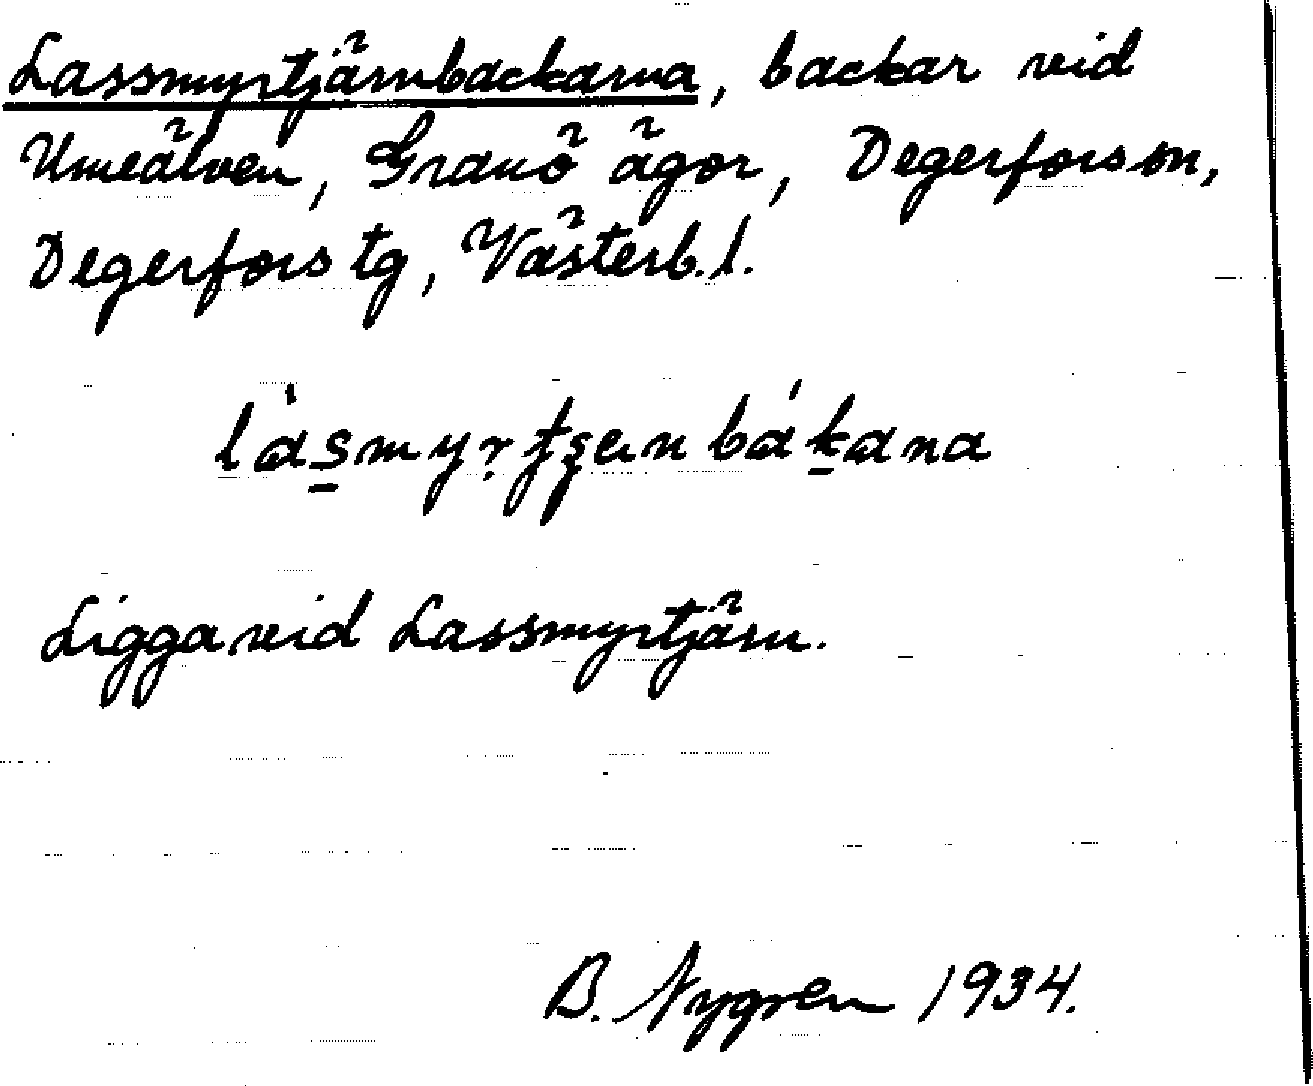 Lassmyrtjärnbackarna, backar vid
Umeälven, Granö ägor, Degerfors sn,
Degerfors tg, Västerb. l.
Ligga vid Lassmyrtjärn.
B. Nygren 1934.